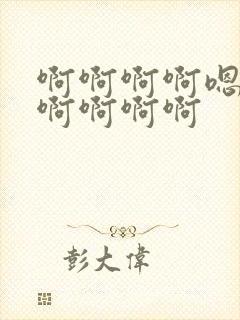 啊啊啊啊嗯
啊啊啊啊
彭大偉